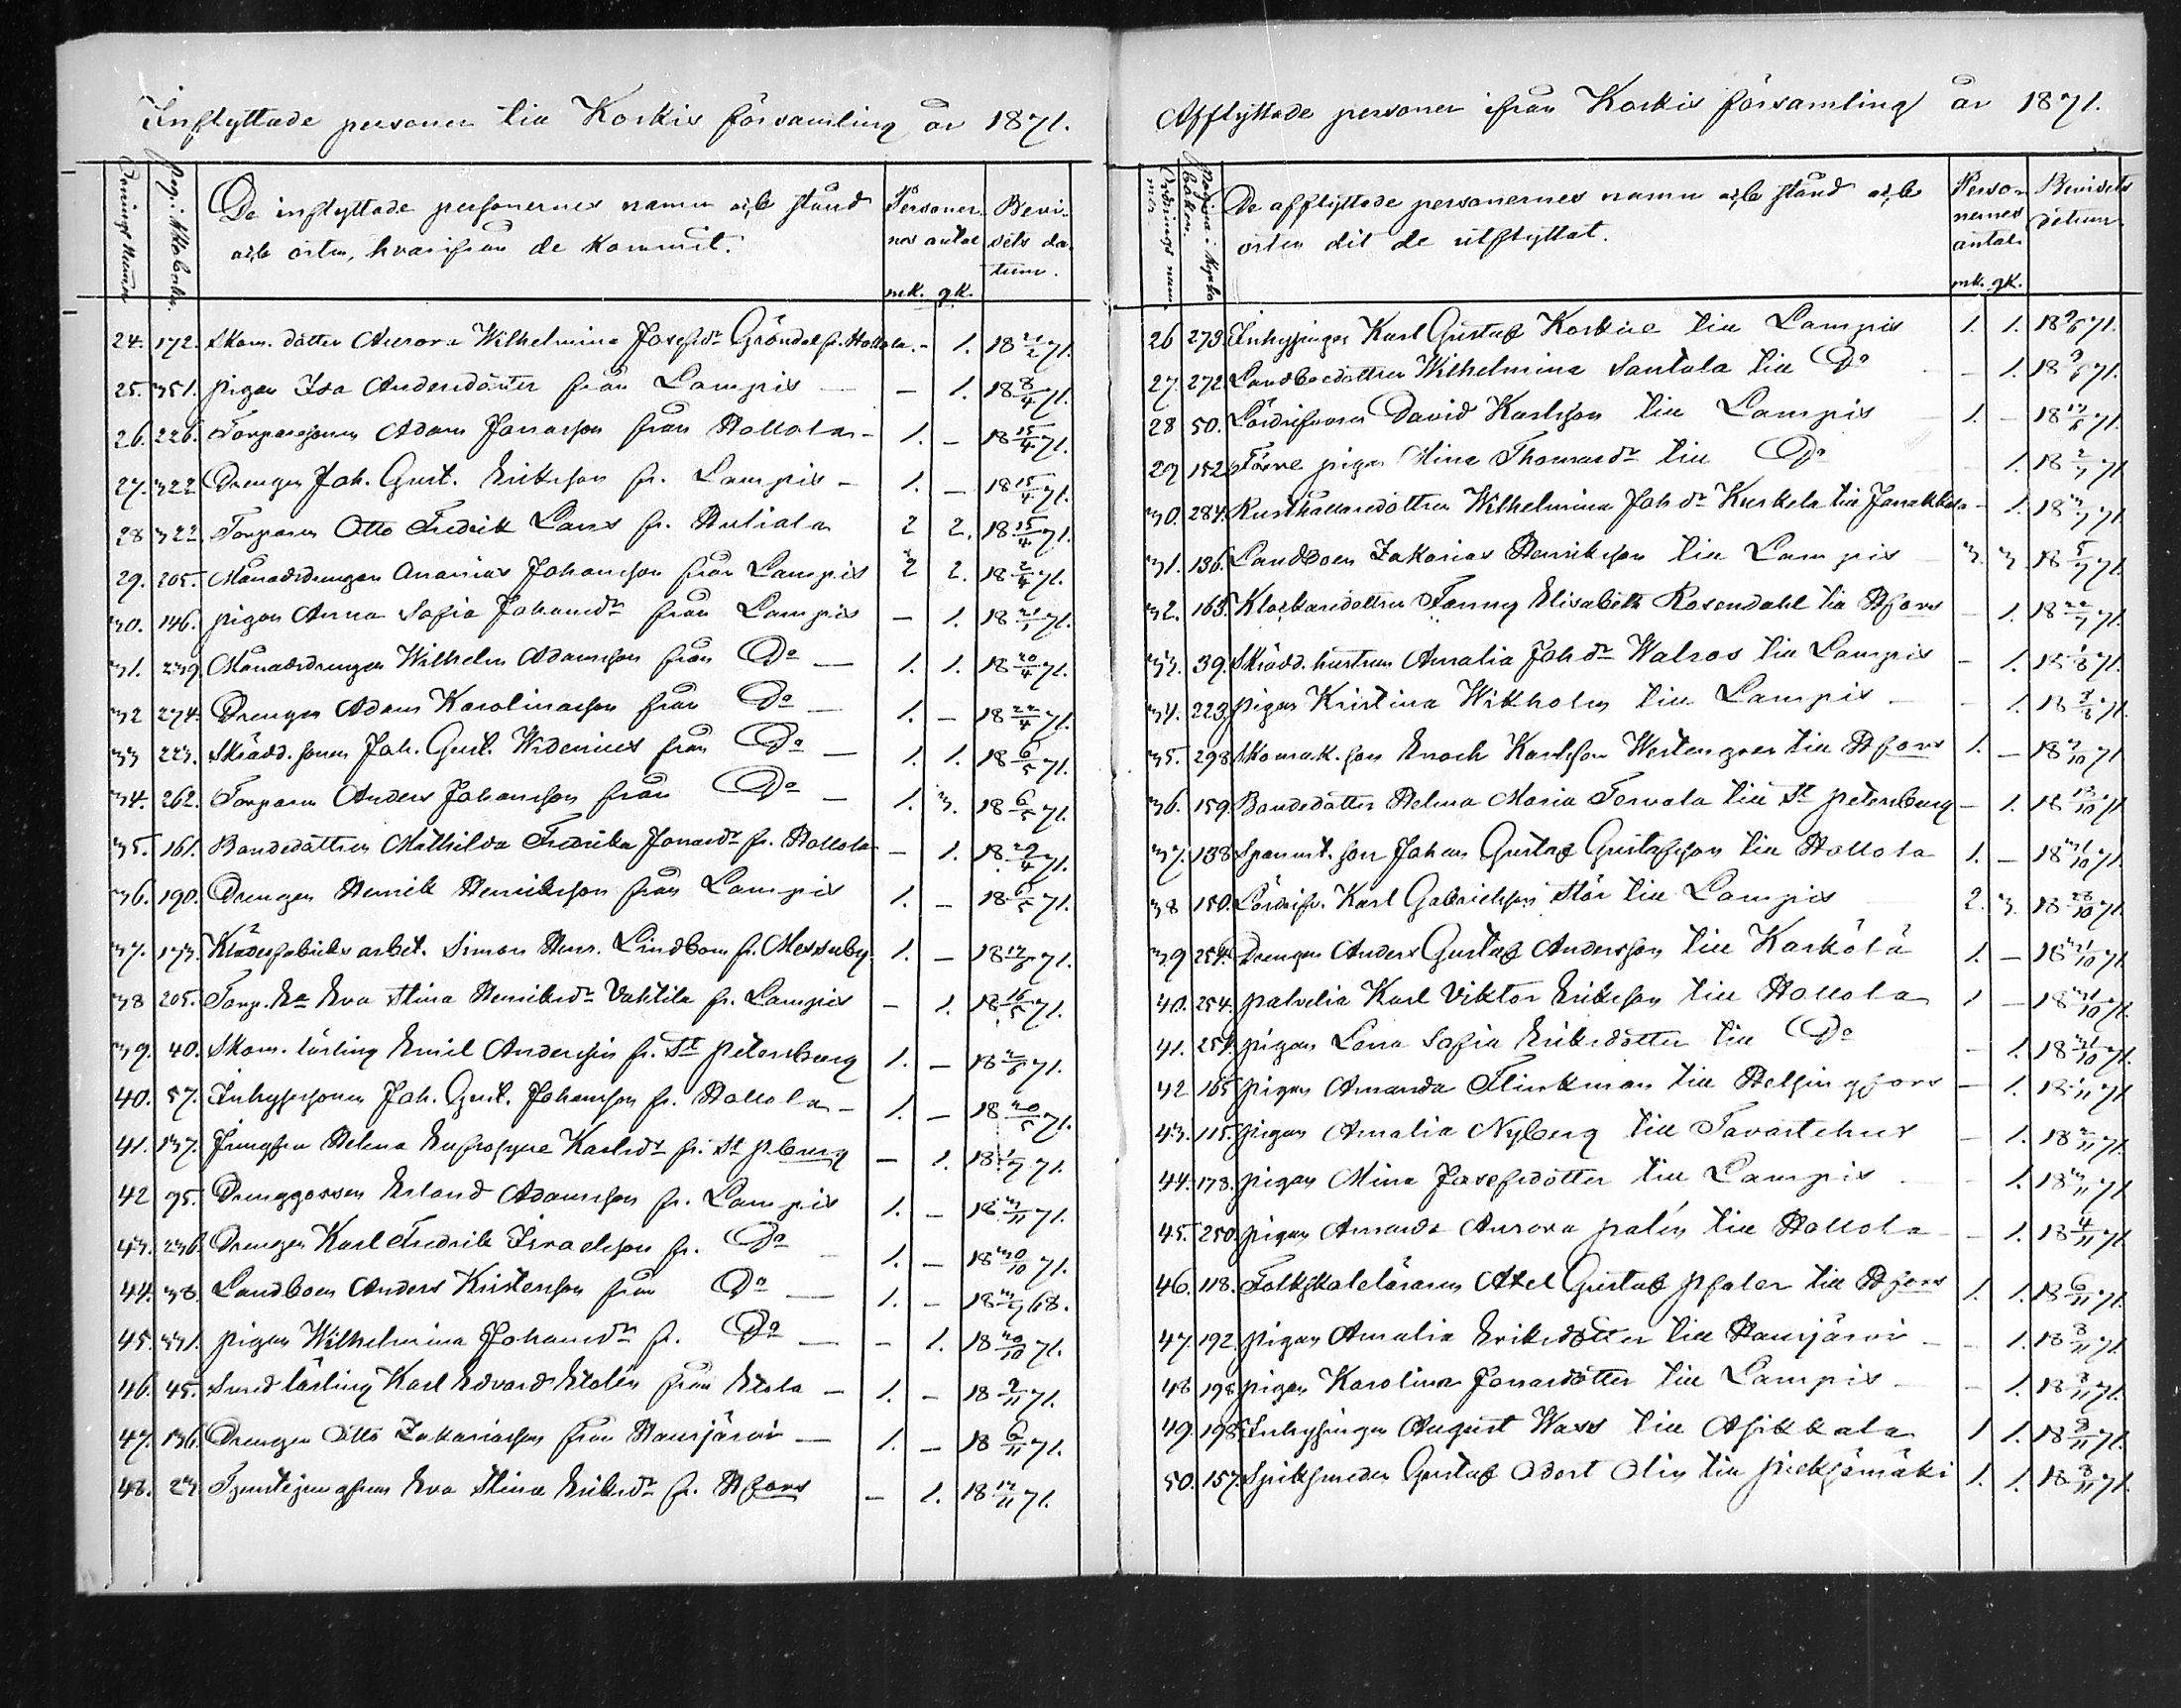 Inflyttade personer till Korkis församling år 1871.
Ordnings Numer
Pag. i K boken.
De inflyttade personernes namn och stånd
och orten, hvarifrån de kommit.
Personer-
nes antal
mk. qk.
Bevi-
sets da-
tum.
24. 172. Skom. dotter Aurora Wilhelmina Josefsdr Gröndal fr. Hollola. - 1. 18 21/2 71.
25. 351. pigan Ida Andersdotter från Lampis - 1. 18 8/4 71.
26. 226. Torparesonen Adam Jonasson från Hollola - 1. - 18 15/4 71.
27. 322 Drengen Joh. Gust. Eriksson fr. Lampis - 1. - 18 15/4 71.
28 322. Torparen Otto Fredrik Lans fr. Hauliala 2 2. 18 15/4 71.
29. 205. Månadsdrengen Ananias Johansson från Lampis 2 2. 18 2/4 71.
30. 146. pigan Anna Sofia Johansdr från Lampis - 1. 18 21/1 71.
31. 239 Månadsdrengen Wilhelm Adamsson från Do - 1. 1. 18 20/4 71.
32 274. Drengen Adam Karolinasson från Do - 1. - 18 22/4 71.
33 223. Skrädd. sonen Joh. Gust. Widenius från Do - 1. 1. 18 6/5 71.
34. 262. Torparen Anders Johansson från Do - 1. 3. 18 6/5 71.
35. 161. Bondedottren Mathilda Fredrika Jonasdr fr. Hollola - 1. 18 29/4 71.
36. 190. Drengen Henrik Henriksson från Lampis 1. - 18 6/5 71.
37. 173. Klädesfabriks arbet. Simon Henr. Lindbom fr. Messuby. 1. - 18 17/6 71.
38 205. Torp. Ea Eva Stina Henriksdr Vahtila fr. Lampis - 1. 18 16/5 71.
39. 40. Skom. lärling Emil Andersin fr. St Petersburg 1. - 18 2/6 71.
40. 57. Inhysesonen Joh. Gust. Johansson fr. Hollola - 1. - 18 20/5 71.
41. 137. Jungfru Helena Eufrosyne Karlsdr fr. St Pburg - 1. 18 1/7 71.
42 95. Drenggossen Erland Adamsson fr. Lampis 1. - 18 3/11 71.
43. 236. Drengen Karl Fredrik Israelsson fr. Do - 1. - 18 30/10 71.
44. 38. Landboen Anders Kristersson från Do - 1. - 18 3/9 68.
45. 331. pigan Wilhelmina Johansdr fr. Do - - 1. 18 20/10 71.
46. 45. Smed lärling Karl Edvard Etolén från Etola - 1. - 18 2/11 71.
47. 136. Drengen Otto Zakariasson från Hausjärvi - 1. - 18 6/11 71.
48. 23. Tjenstejungfrun Eva Stina Eriksdr fr. Hfors - 1. 18 17/11 71.
Afflyttade personer ifrån Korkis församling år 1871.
Ordnings num-
mer.
Pagina i Kyrko
boken.
De afflyttade personernes namn och stånd och
orten dit de utflyttat.
Perso-
nernes
antal
mk. qk.
Bevisets
datum.
26 273. Inhysingen Karl Gustaf Korkie till Lampis 1. 1. 18 9/6 71.
27. 272. Landbodottren Wilhelmina Santala till Do - 1. 18 9/6 71.
28 50. Lösdrifvaren David Karlsson till Lampis 1. - 18 17/6 71.
29 152. Förre pigan Mina Thomasdr till Do 1. 18 2/7 71
30. 284. Rusthållaredottren Wilhelmina Johdr Kurkela till Janakkala - 1. 18 3/7 71.
31. 136. Landboen Zakarias Henriksson till Lampis 3. 3. 18 5/7 71.
32. 165. Klockaredottren Fanny Elisabeth Rosendahl till Hfors - 1. 18 22/7 71.
33. 39. Skrädd. hustrun Amalia Johdr Walros till Lampis - 1. 18 1/8 71.
34. 223. pigan Kristina Wikholm till Lampis - - 1. 18 3/8 71.
35. 298 Skomak. son Enoch Karlsson Westengren till Hfors 1. - 18 3/10 71
36. 159. Bondedotter Helena Maria Tervala till St Petersburg - 1. 18 13/10 71
37. 138 Spanmt. son Johan Gustaf Gustafsson till Hollola 1. - 18 31/10 71
38 150. Lösdrifv. Karl Gabrielsson Stör till Lampis 2. 3. 18 28/10 71.
39 254. Drengen Anders Gustaf Andersson till Kärkölä 1. - 18 31/10 71
40. 254. palvelia Karl Viktor Eriksson till Hollola 1 - 18 31/10 71.
41. 251. pigan Lena Sofia Eriksdotter till Do - 1. 18 31/10 71.
42 165 pigan Amanda Flinkman till Helsingfors - 1. 18 1/11 71
43. 115. pigan Amalia Nyberg till Tavastehus - 1. 18 2/11 71.
44. 178. pigan Mina Josefsdotter till Lampis - 1. 18 3/11 71
45. 250. pigan Amanda Aurora Palén till Hollola - 1. 18 4/11 71
46. 118. Folkskoleläraren Axel Gustaf Pfaler till Hfors 1. 1. 18 6/11 71.
47. 192. pigan Amalia Eriksdotter till Hausjärvi - 1. 18 8/11 71
48 198. pigan Karolina Jonasdotter till Lampis - - 1. 18 8/11 71.
49. 198. Inhysingen August Wass till Asikkala 1 1. 18 8/11 71.
50. 157. Spiksmeden Gustaf Odert Olin till Pieksämäki 1. 1. 18 8/11 71.